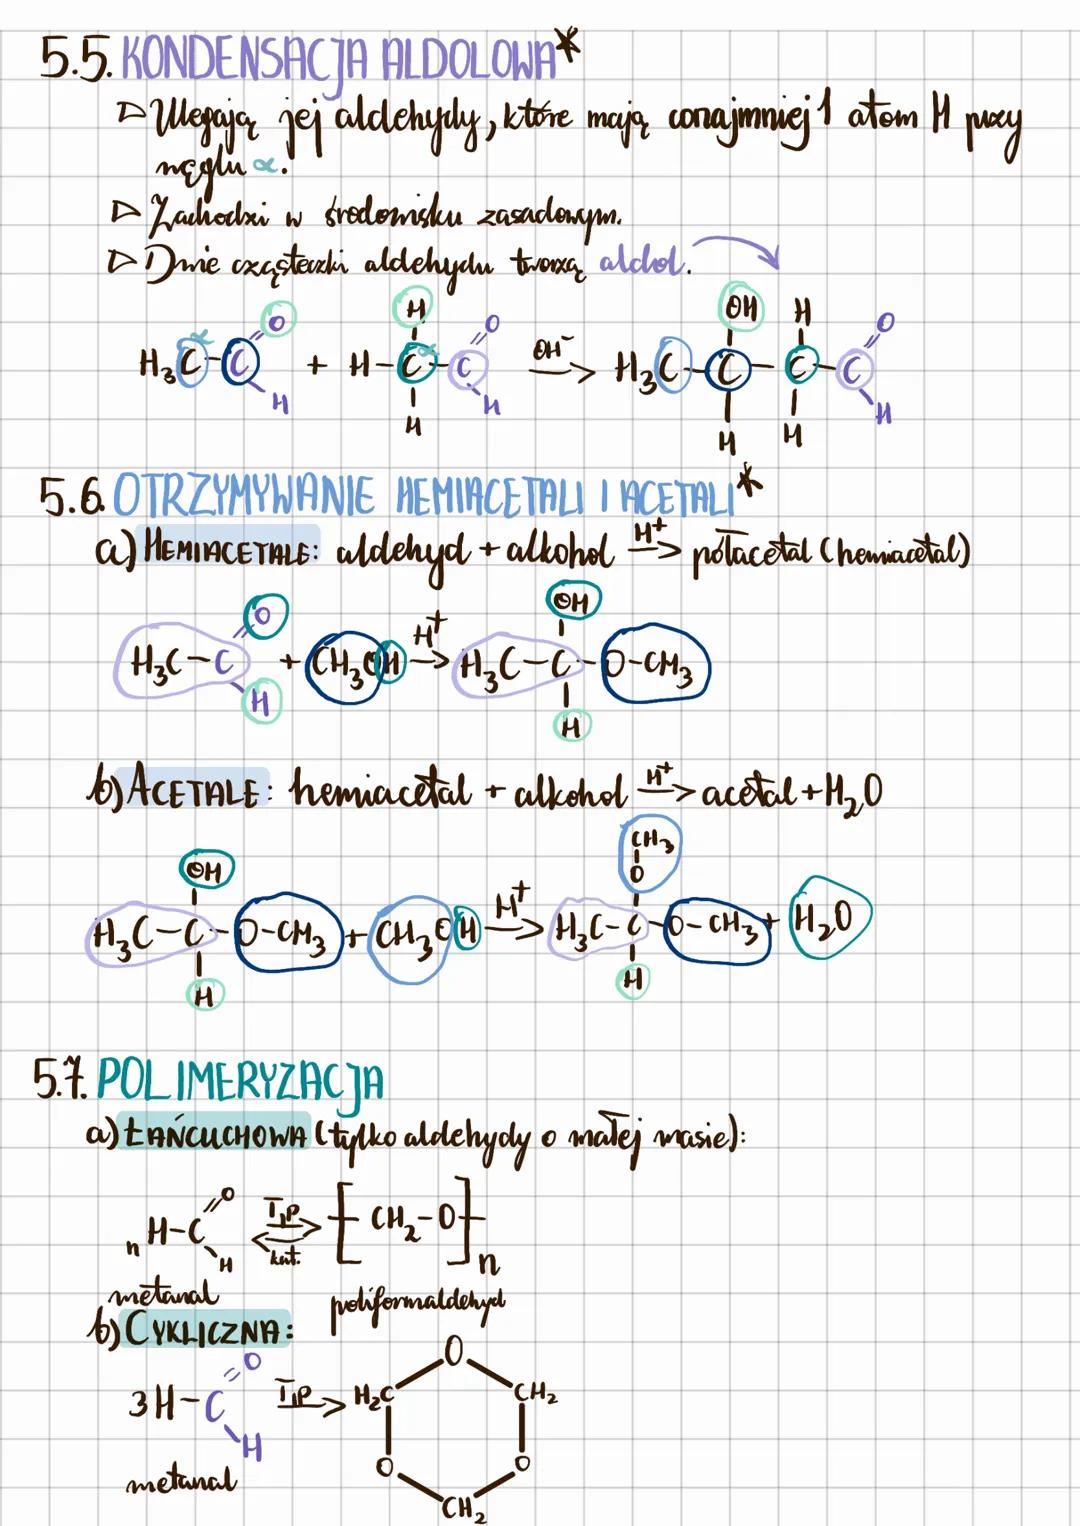 5.5. KONDENSACJA ALDOLOWA*
▷ Ulegają jej aldehydy, które mają conajmniej 1 atom H przy
węglu α.
▷ Zachodzi w środowisku zasadowym.
▷ Dwie cząsteczki aldehydu tworzą aldol.
H OH H
α O O O
H₃C-C + H-C-C OH⁻ → H₃C-C-C-C
α
H H H
H H H
5.6. OTRZYMYWANIE HEMIACETALI I ACETALI*
a) HEMIACETALE: aldehyd + alkohol H⁺ → półacetal (hemiacetal)
O OH
H₃C-C + CH₃OH H⁺ → H₃C-C-O-CH₃
H H
b) ACETALE: hemiacetal + alkohol H⁺ → acetal + H₂O
CH₃
OH O
H₃C-C-O-CH₃ + CH₃OH H⁺ → H₃C-C-O-CH₃ + H₂O
H H
5.7. POLIMERYZACJA
a) ŁAŃCUCHOWA (tylko aldehydy o małej masie):
O
n H-C T,p ⇄ kat. [CH₂-O]n
H
metanal poliformaldehyd
b) CYKLICZNA:
O O
3H-C T,p → H₂C CH₂
H
O O
metanal
CH₂